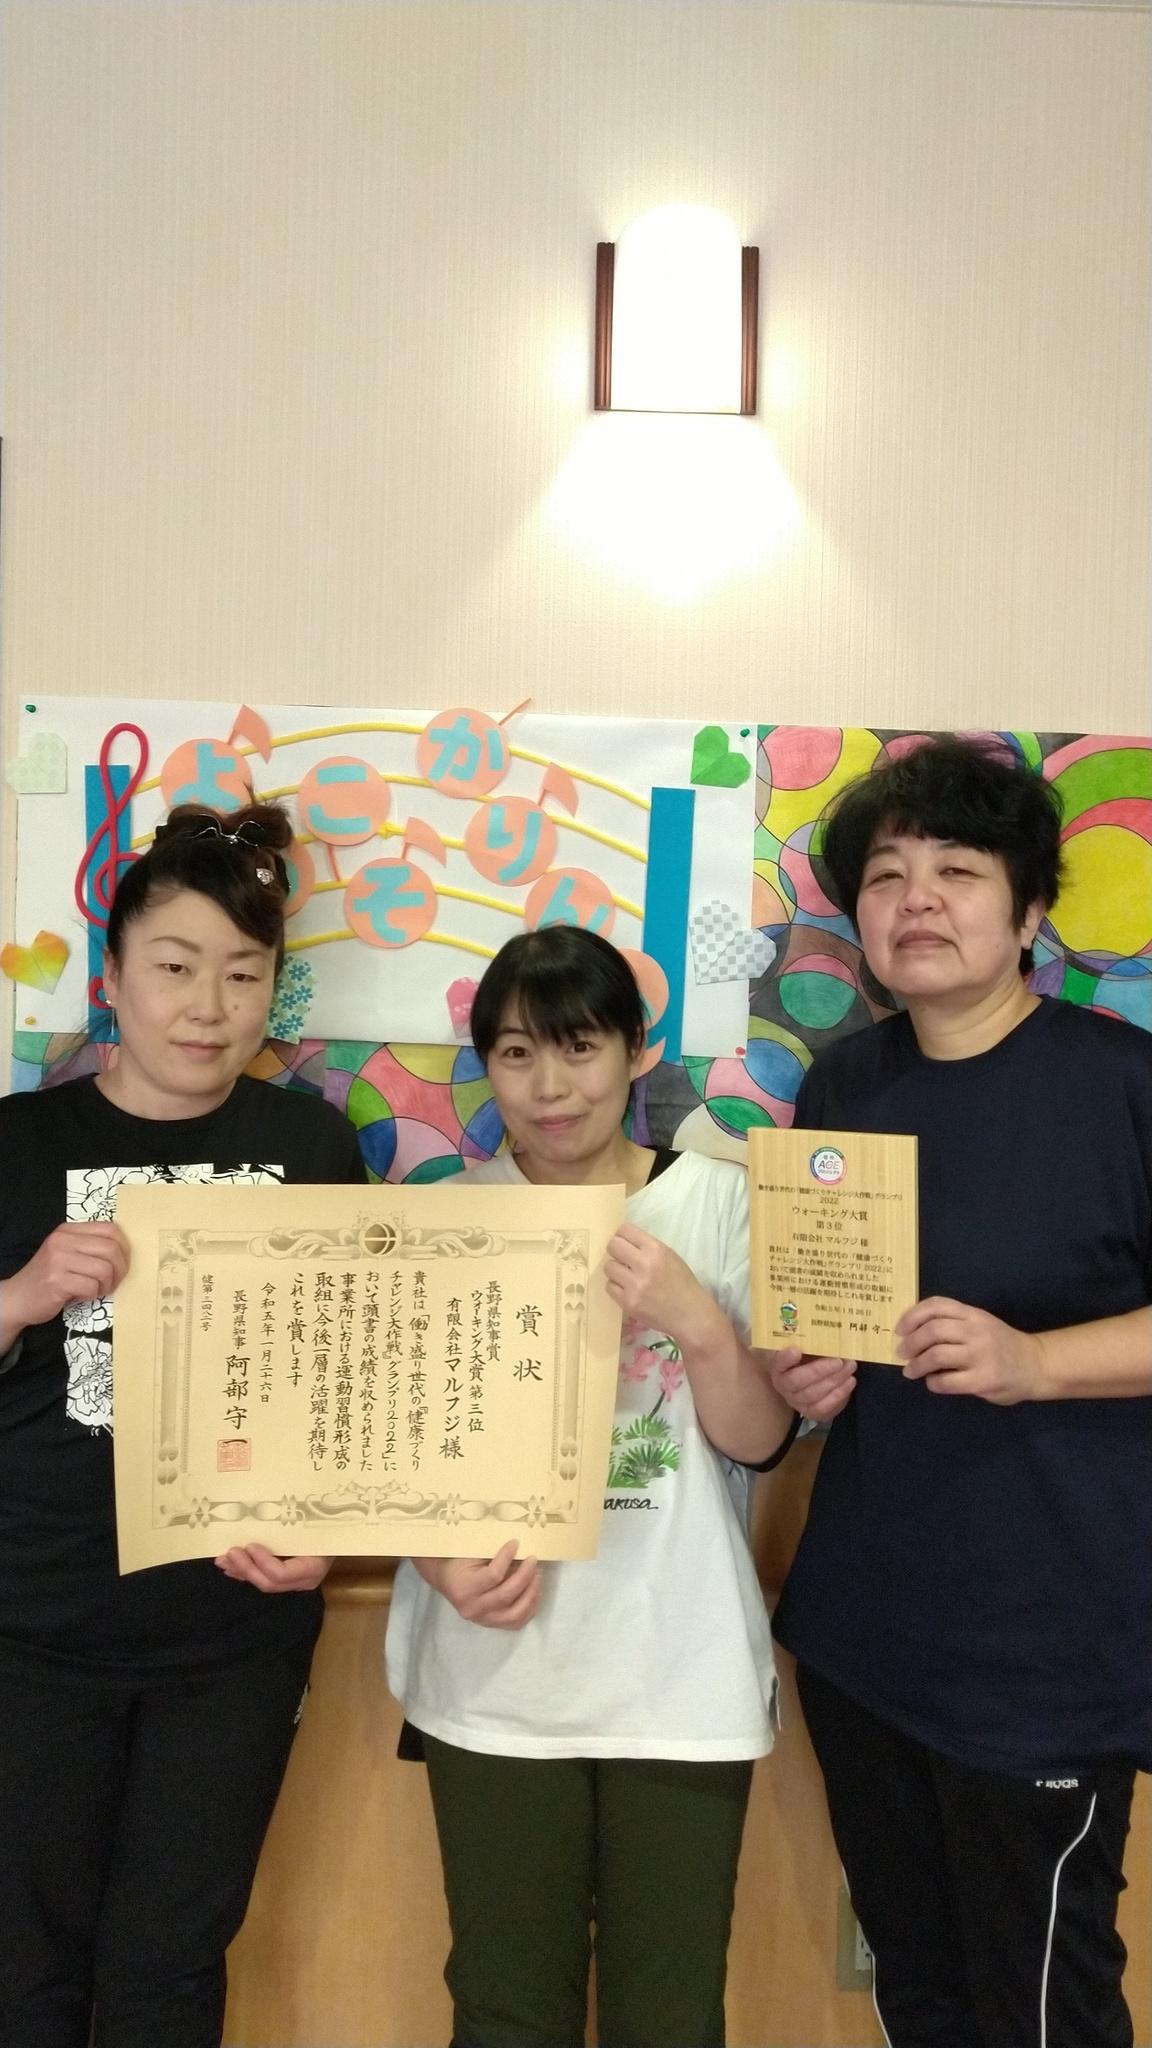 よ
こ
そ
かりん
賞状
長野県知事賞
ウォーキング大賞第三位
有限会社マルフジ様
貴社は「働き盛り世代の『健康づくり
チャレンジ大作戦』グランプリ2022」に
おいて頭書の成績を収められました
事業所における運動習慣形成の
取組に今後一層の活躍を期待し
これを賞します
令和五年一月二十六日
長野県知事 阿部守一
健第二四八二号
AGE
働き盛り世代の「健康づくりチャレンジ大作戦」グランプリ
2022
ウォーキング大賞
第3位
有限会社 マルフジ 様
貴社は「働き盛り世代の「健康づくり
チャレンジ大作戦」グランプリ2022」に
おいて頭書の成績を収められました
事業所における運動習慣形成の取組に
今後一層の活躍を期待しこれを賞します
令和5年1月26日
長野県知事 阿部 守一
akusa